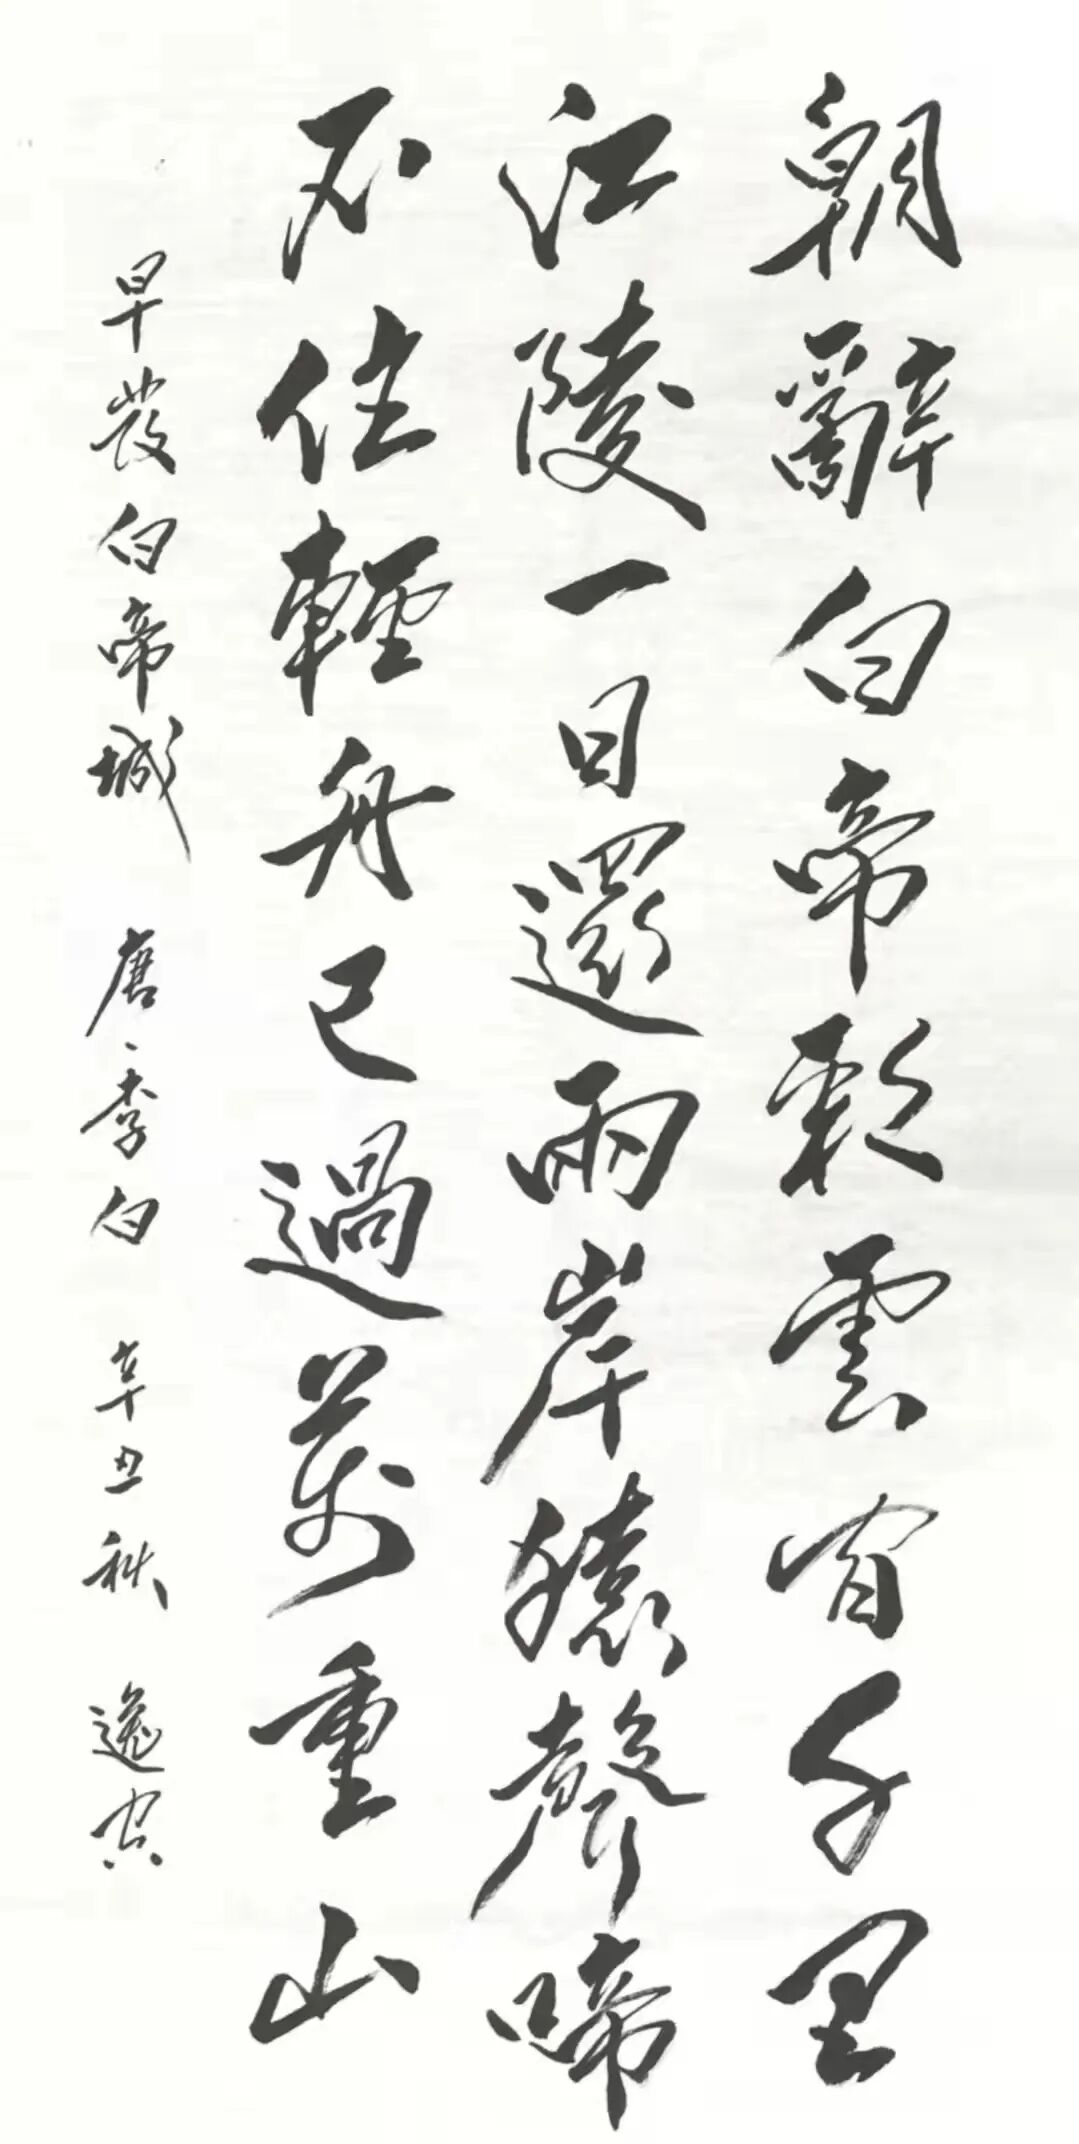 朝辭白帝彩雲間千里
江陵一日還兩岸猿聲啼
不住輕舟已過萬重山
早發白帝城 唐、李白 辛丑秋 逸